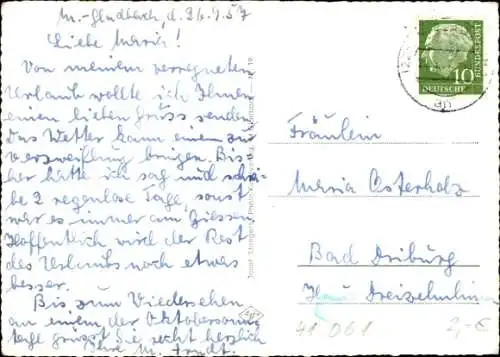 M.-Gladbach, d. 26.9.57
Liebe Maria!
Von meinem verregneten
Urlaub wollte ich Ihnen
einen lieben Gruss senden.
Das Wetter kann einem zur
Verzweiflung bringen. Bis-
her hatte ich sag und schrei-
be 2 regenlose Tage, sonst
war es immer am Giessen.
Hoffentlich wird der Rest
des Urlaubs noch etwas
besser.
Bis zum Wiedersehen
an einem der Oktobersonnen-
tage grüsst Sie recht herzlich
Ihre M.
10
DEUTSCHE
BUNDESPOST
Fräulein
Maria Osterholz
Bad Driburg
Haus Dreizehnlinden
41 061
2,-€